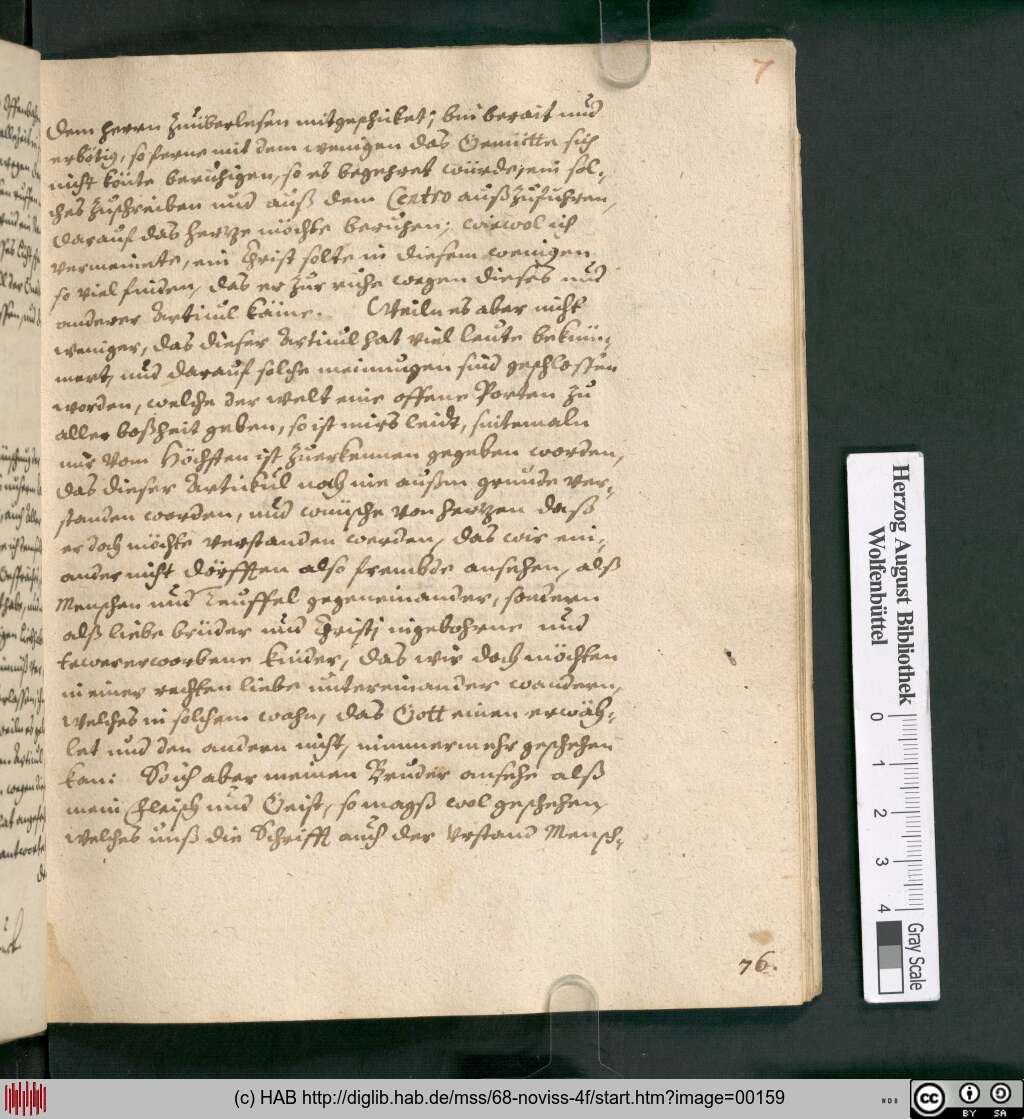 7
dem herrn zuüberlesen mitgeschicket; bin berait und
erbötig, so ferne mit dem wenigen das Gemütte sich
nicht köнte beruhigen, so es begehret würde, ein sol-
ches zuschreiben und auß dem Centro außzuführen,
darauf das hertze möchte beruhen; wiewol ich
vermeinete, ein Christ solte in diesem wenigen
so viel finden, das er zur ruhe wegen dieses und
anderer Articul käme. Weiln es aber nicht
weniger, das dieser Articul hat viel leute beküm-
mert, und darauf solche meinungen sind geschlossen
worden, welche der welt eine offene Porten zu
aller boßheit geben, so ist mirs leidt, sintemaln
mir vom Höchsten ist zuerkennen gegeben worden,
das dieser Artickul noch nie außm grunde ver-
standen worden, und wünsche von hertzen daß
er doch möchte verstanden werden, das wir ein-
ander nicht dörfften also frembde ansehen, alß
Menschen und Teuffel gegeneinander, sondern
alß liebe brüder und Christj ingebohrne und
tewererworbene kinder, das wir doch möchten
in einer rechten liebe untereinander wandern,
welches in solchem wahn, das Gott einen erwäh-
let und den andern nicht, nimmermehr geschehen
kan: So ich aber meinen Bruder ansehe alß
mein Fleisch und Geist, so magß wol geschehen,
welches unß die Schrifft auch der Verstand Mensch-
76.
Herzog August Bibliothek
Wolfenbüttel
0 1 2 3 4
Gray Scale
(c) HAB http://diglib.hab.de/mss/68-noviss-4f/start.htm?image=00159
WDB
CC BY SA